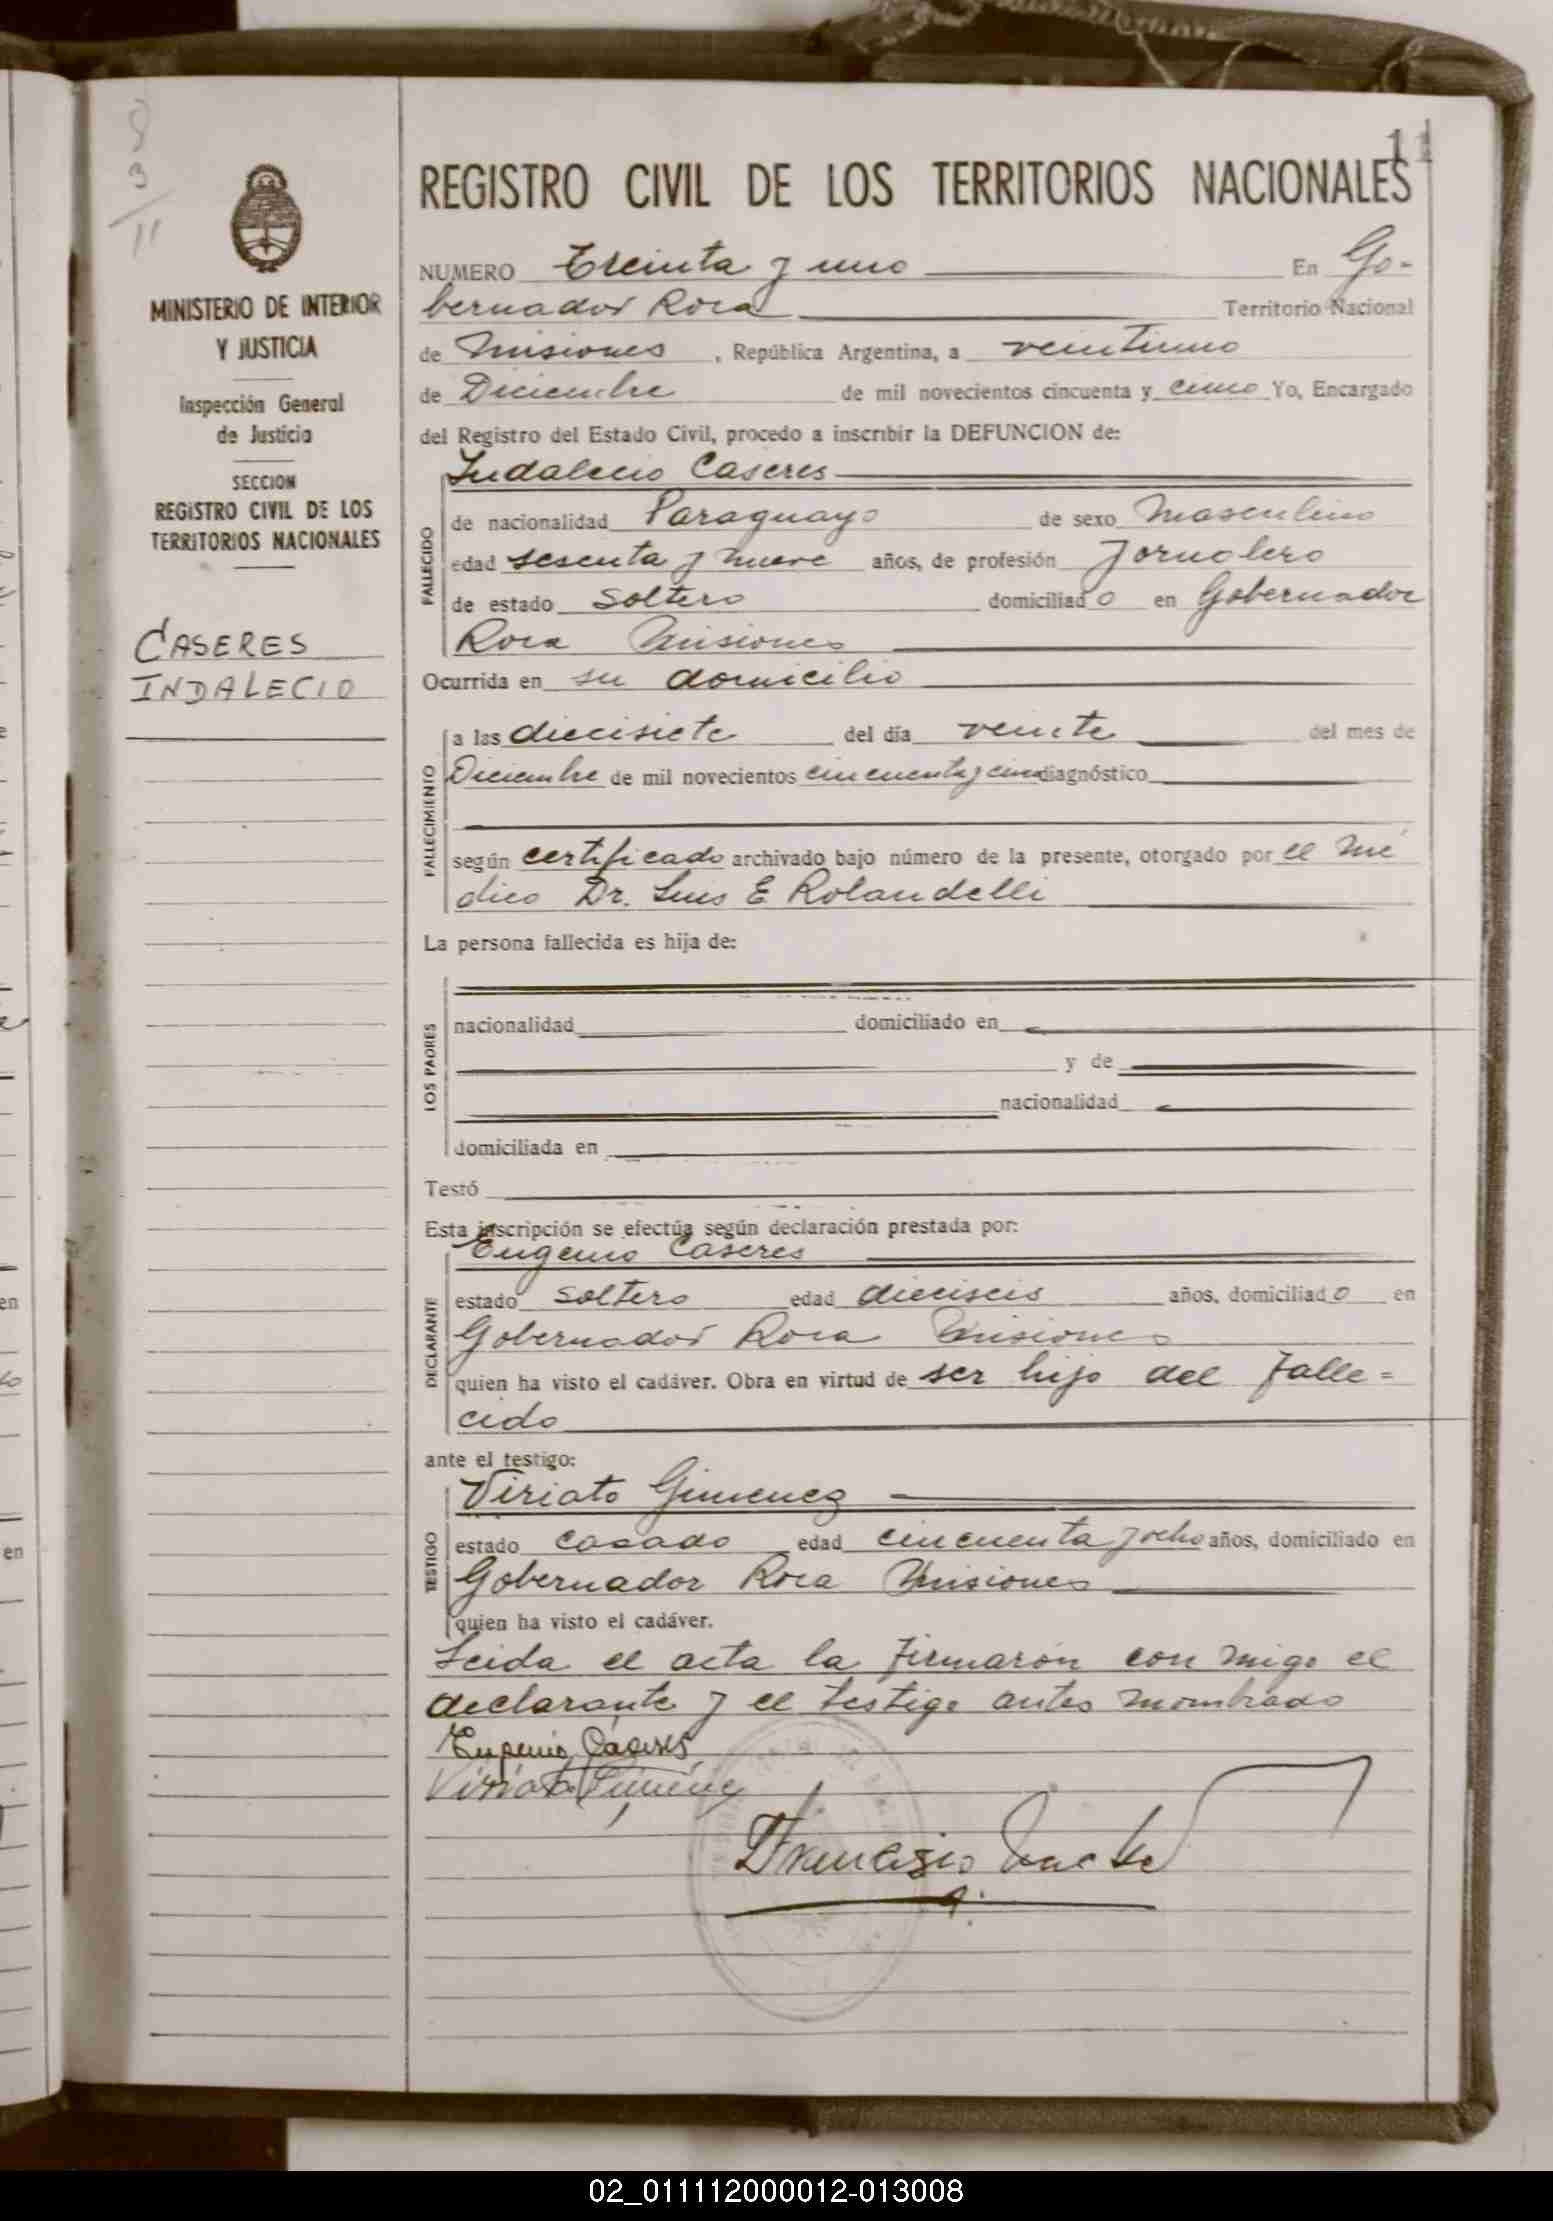 8
3
11
MINISTERIO DE INTERIOR
Y JUSTICIA
Inspección General
de Justicia
SECCION
REGISTRO CIVIL DE LOS
TERRITORIOS NACIONALES
CASERES
INDALECIO
11
REGISTRO CIVIL DE LOS TERRITORIOS NACIONALES
NUMERO Treinta y uno En Go-
bernador Roca Territorio Nacional
de Misiones, República Argentina, a veintiuno
de Diciembre de mil novecientos cincuenta y cinco Yo, Encargado
del Registro del Estado Civil, procedo a inscribir la DEFUNCION de:
FALLECIDO
Indalecio Caseres
de nacionalidad Paraguayo de sexo Masculino
edad sesenta y nueve años, de profesión Jornalero
de estado Soltero domiciliado en Gobernador
Roca Misiones
Ocurrida en su domicilio
FALLECIMIENTO
a las diecisiete del día veinte del mes de
Diciembre de mil novecientos cincuenta y cinco diagnóstico
según certificado archivado bajo número de la presente, otorgado por el mé
dico Dr. Luis E Rolandelli
La persona fallecida es hija de:
LOS PADRES
nacionalidad domiciliado en
y de
nacionalidad
domiciliada en
Testó
Esta inscripción se efectúa según declaración prestada por:
DECLARANTE
Eugenio Caseres
estado Soltero edad dieciseis años, domiciliado en
Gobernador Roca Misiones
quien ha visto el cadáver. Obra en virtud de ser hijo del Falle=
cido
ante el testigo:
TESTIGO
Viriato Gimenez
estado casado edad cincuenta y ocho años, domiciliado en
Gobernador Roca Misiones
quien ha visto el cadáver.
Leida el acta la firmarón con migo el
declarante y el testigo antes nombrado
Eugenio Caseres
Viriato Gimenez
02_011112000012-013008